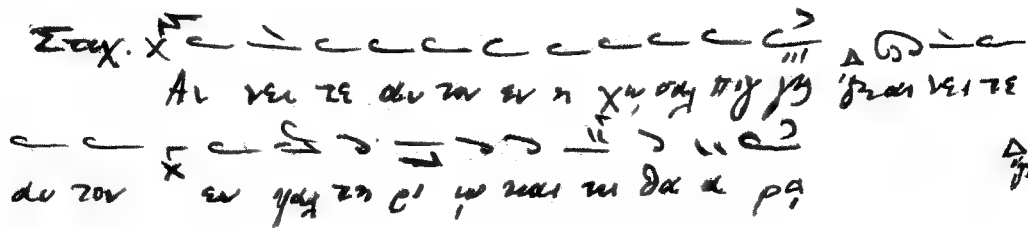 Στιχ. Αι νει τε αυ τον εν η χω σαλ πιγ γος αι νει τε
αυ τον εν ψαλ τη ρι ω και κι θα α ρα